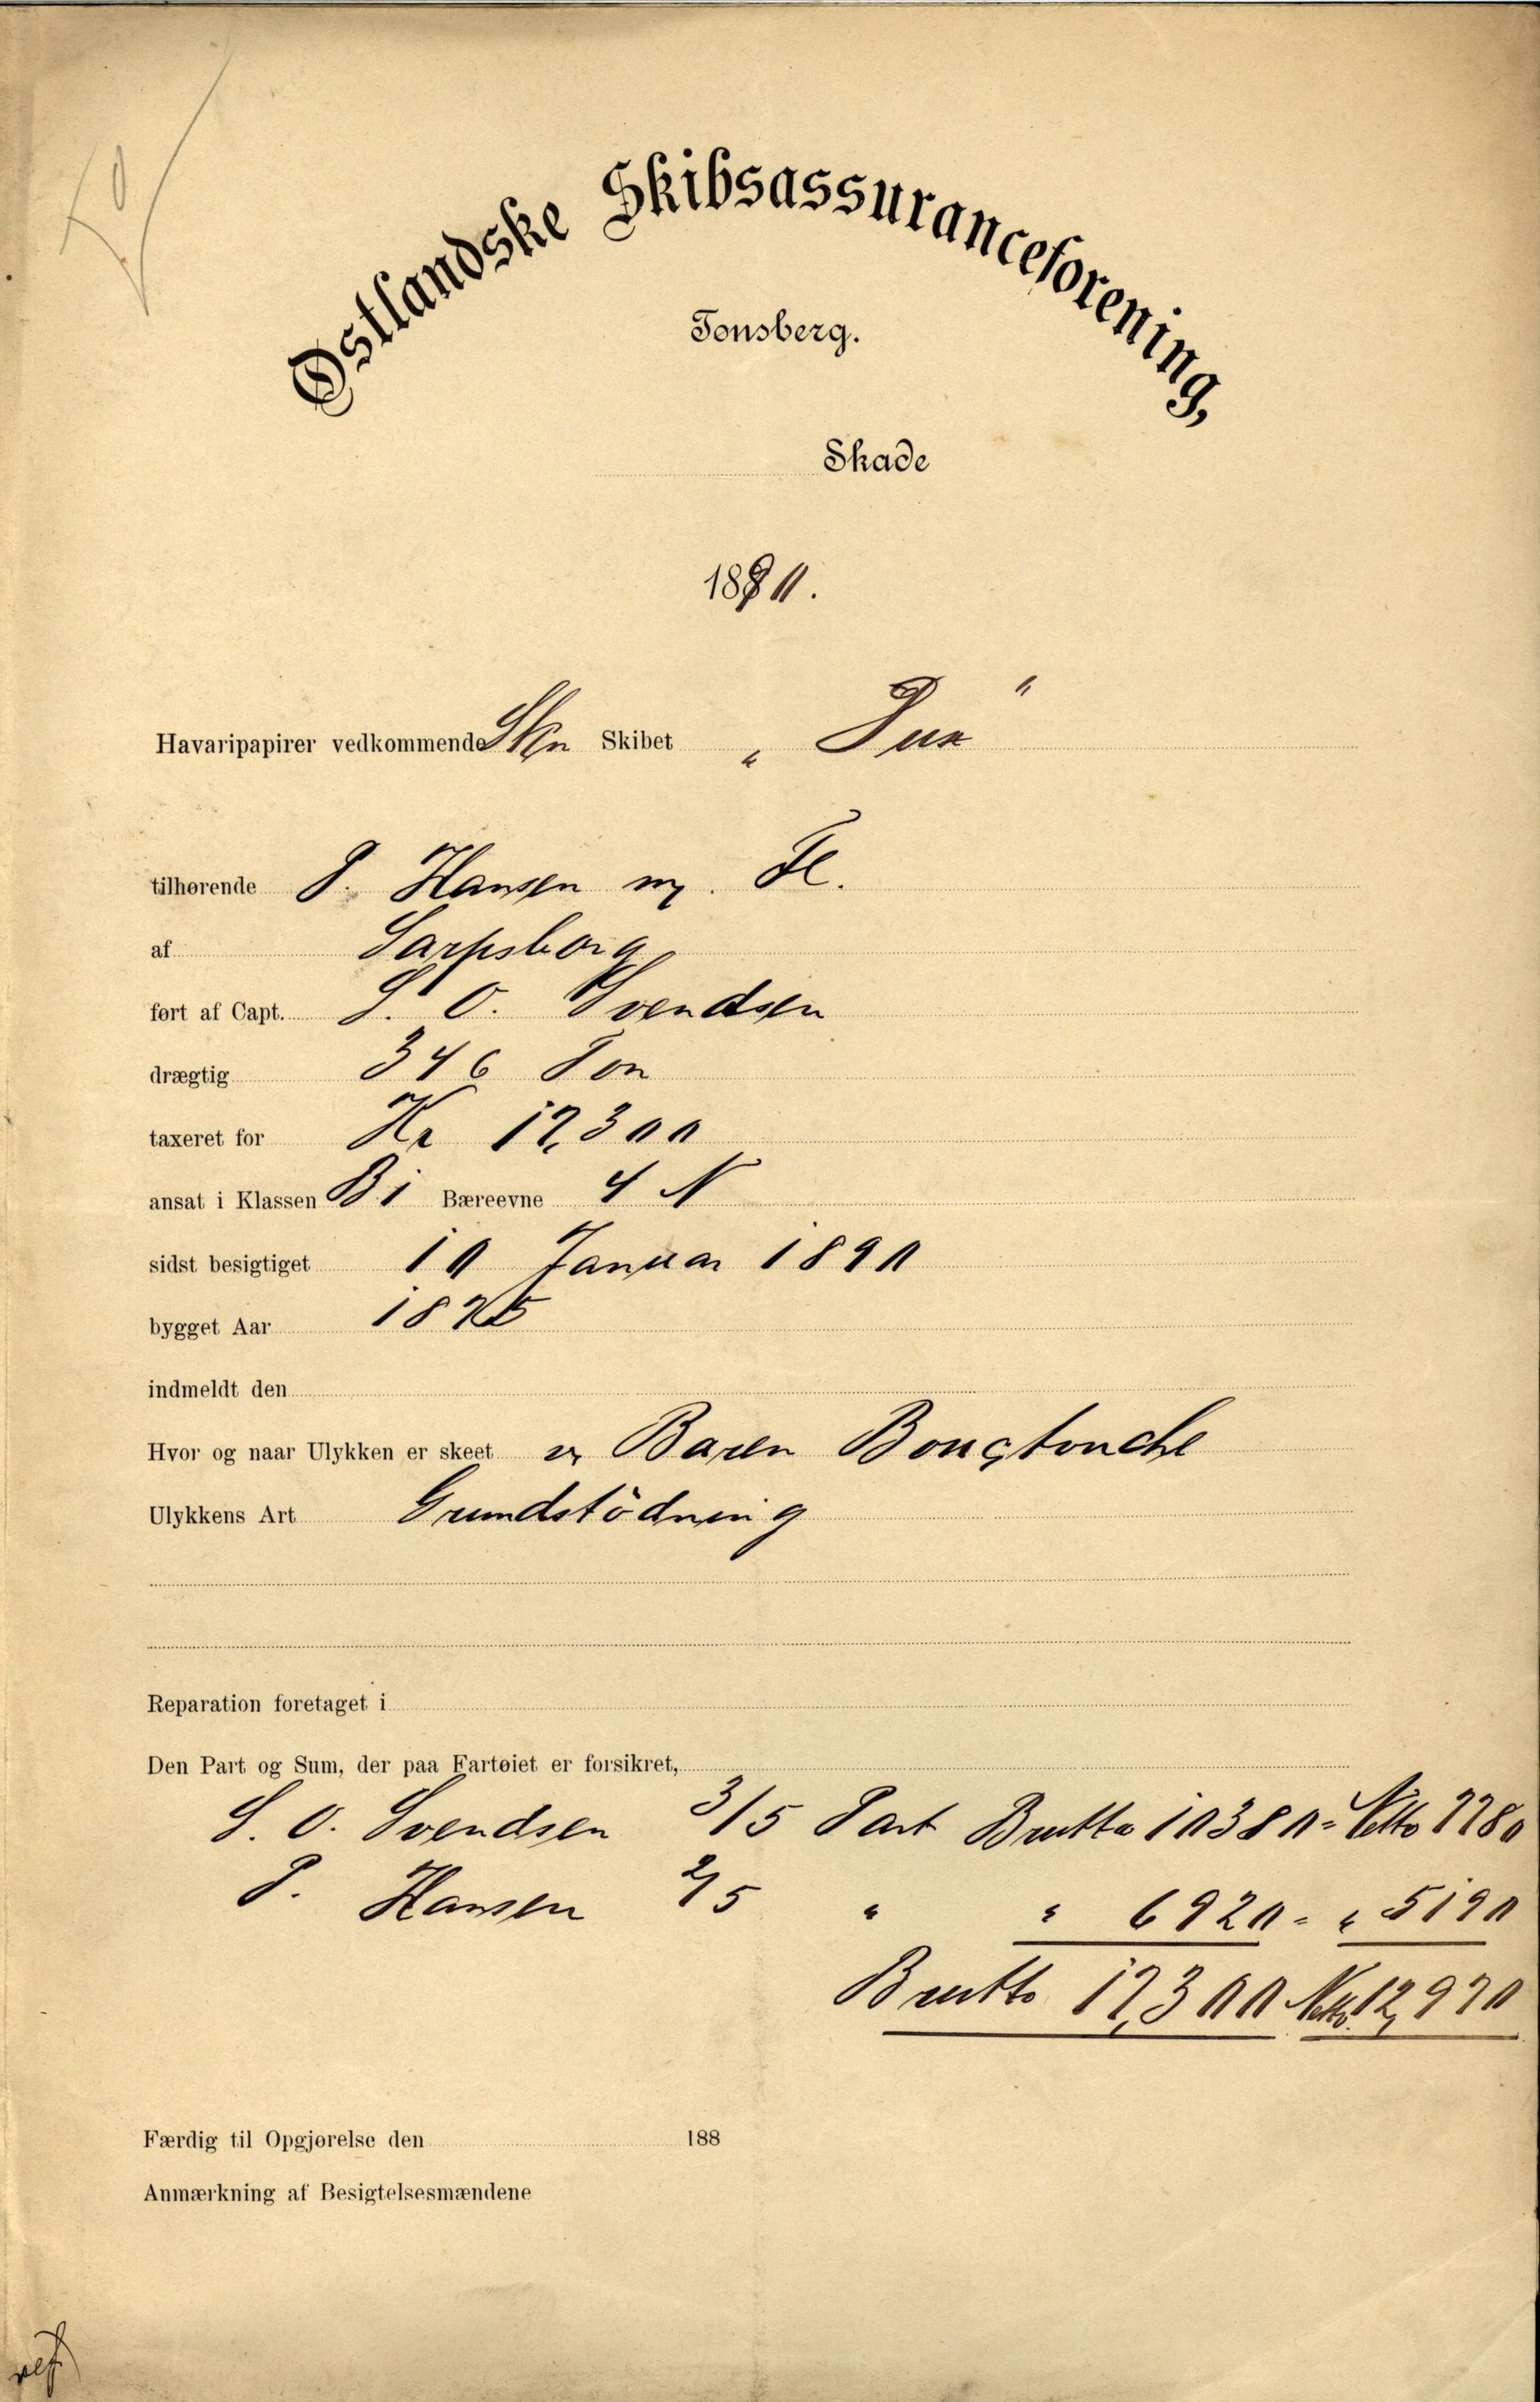 Østlandske Skibsassuranceforening,
Tonsberg.
Skade
1890.
Havaripapirer vedkommende Skn Skibet „ Dux "
tilhørende P. Hansen m. Fl.
af Sarpsborg
ført af Capt. S. O. Svendsen
drægtig 346 Ton
taxeret for Kr 17,300
ansat i Klassen B 1 Bæreevne 4 N
sidst besigtiget 10 Januar 1890
bygget Aar 1875
indmeldt den
Hvor og naar Ulykken er skeet v. Baren Bouctouche
Ulykkens Art Grundstödning
Reparation foretaget i
Den Part og Sum, der paa Fartøiet er forsikret,
S. O. Svendsen 3/5 Part Brutto 10380 = Netto 7780
P. Hansen 2/5 " " 6920 = " 5190
Brutto 17,300 Netto 12,970
Færdig til Opgjørelse den 188
Anmærkning af Besigtelsesmændene